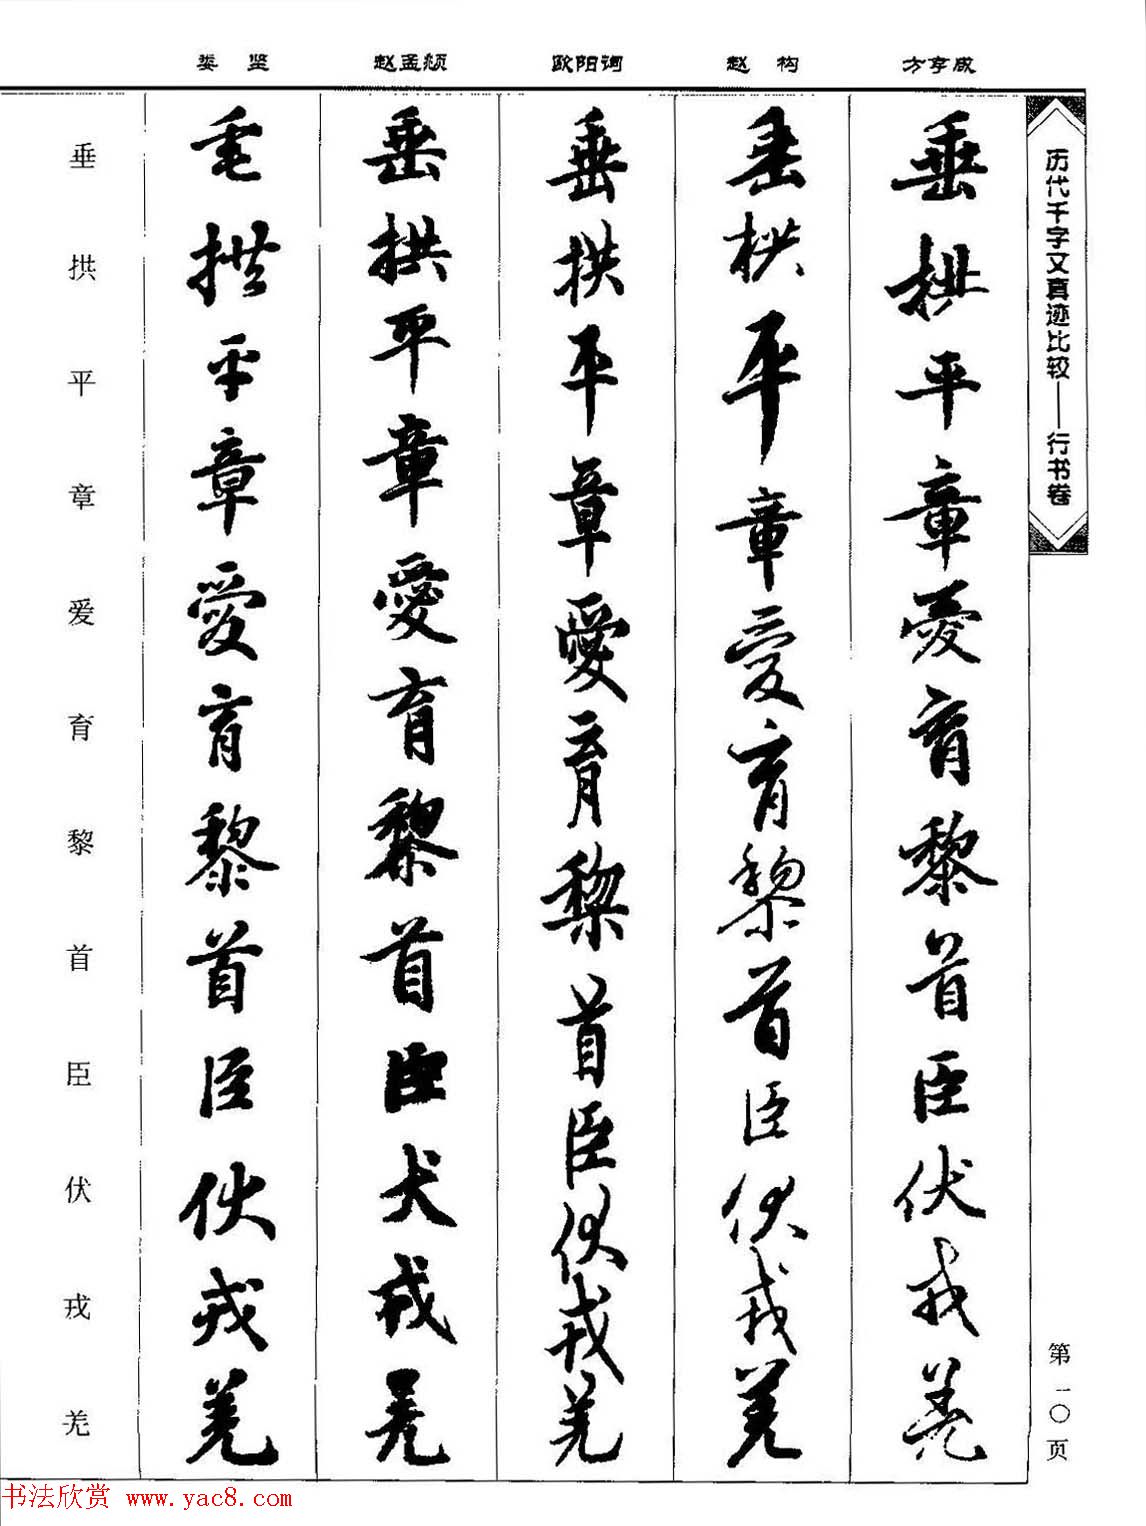 娄 坚 赵孟頫 欧阳询 赵 构 方亨咸
历代千字文真迹比较——行书卷
垂拱平章爱育黎首臣伏戎羌
垂拱平章愛育黎首臣伏戎羌
垂拱平章愛育黎首臣伏戎羌
垂拱平章愛育黎首臣伏戎羌
垂拱平章愛育黎首臣犬戎羌
垂拱平章愛育黎首臣伏戎羌
第一〇页
书法欣赏 www.yac8.com